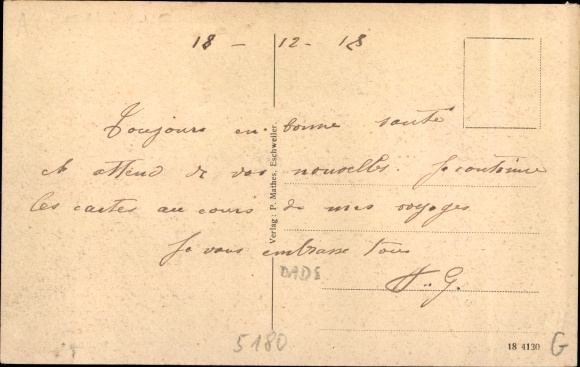 18 - 12 - 18
Toujours en bonne santé
et attend de vos nouvelles. Je continue
les cartes au cours de mes voyages
Je vous embrasse tous
G.
Verlag: P. Mathes, Eschweiler.
DADS
5180
18 4130
G